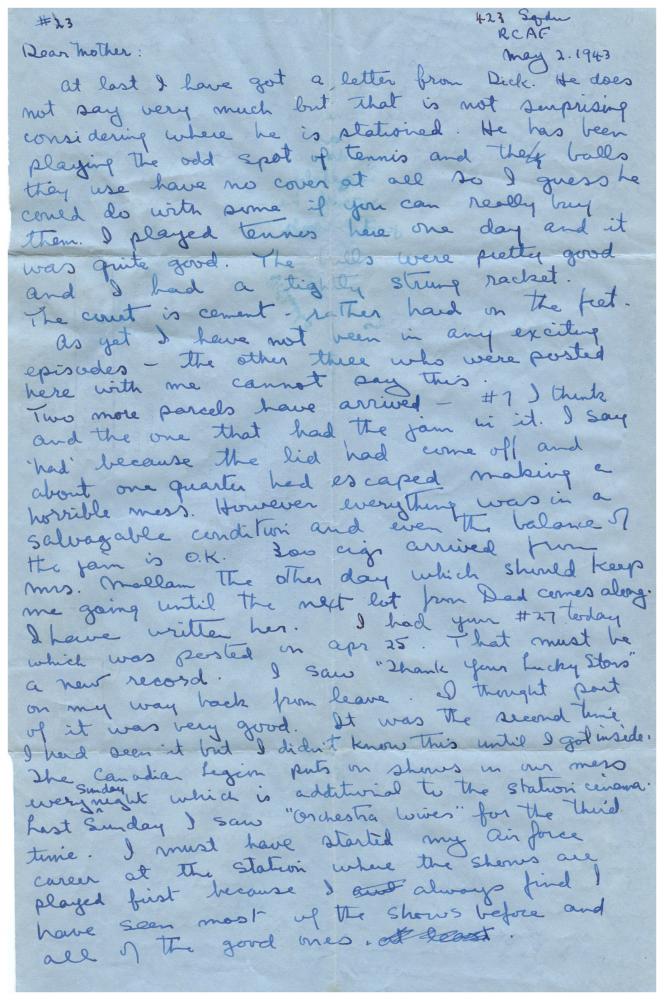 #23
423 Sqdn
RCAF
May 2. 1943
Dear Mother:
At last I have got a letter from Dick. He does
not say very much but that is not surprising
considering where he is stationed. He has been
playing the odd spot of tennis and the balls
they use have no cover at all so I guess he
could do with some if you can really buy
them. I played tennis here one day and it
was quite good. The lls were pretty good
and I had a tightly strung racket.
The court is cement - rather hard on the feet.
As yet I have not been in any exciting
episodes - the other three who were posted
here with me cannot say this.
Two more parcels have arrived - #7 I think
and the one that had the jam in it. I say
'had' because the lid had come off and
about one quarter had escaped making a
horrible mess. However everything was in a
salvagable condition and even the balance of
the jam is O.K. 300 cigs arrived from
Mrs. Mallam the other day which should keep
me going until the next lot from Dad comes along.
I have written her. I had your #27 today
which was posted on Apr 25. That must be
a new record. I saw "Thank Your Lucky Stars"
on my way back from leave. I thought part
of it was very good. It was the second time
I had seen it but I didn't know this until I got inside.
The Canadian Legion puts on shows in our mess
every Sunday night which is additional to the station cinema.
Last Sunday I saw "Orchestra Wives" for the third
time. I must have started my air force
career at the station where the shows are
played first because I always find I
have seen most of the shows before and
all of the good ones. at least.